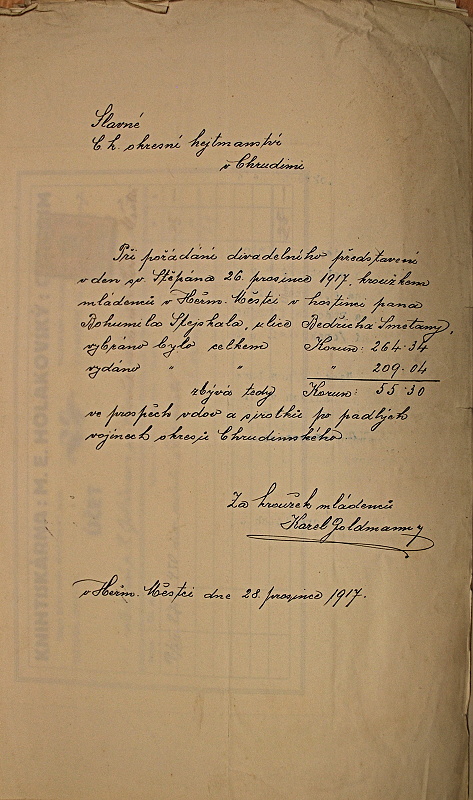 Slavné
C. k. okresní hejtmanství
v Chrudimi
Při pořádání divadelního představení
v den sv. Štěpána 26. prosince 1917, kroužkem
mládenců v Heřm. Městci v hostinci pana
Bohumila Stejskala, ulice Bedřicha Smetany,
vybráno bylo celkem Korun: 264·34
vydáno " " " 209·04
zbývá tedy Korun: 55·30
ve prospěch vdov a sirotků po padlých
vojínech okresu Chrudimského.
Za kroužek mládenců
Karel Goldmann
v Heřm. Městci dne 28. prosince 1917.
KNIHTISKÁRNA M. E.